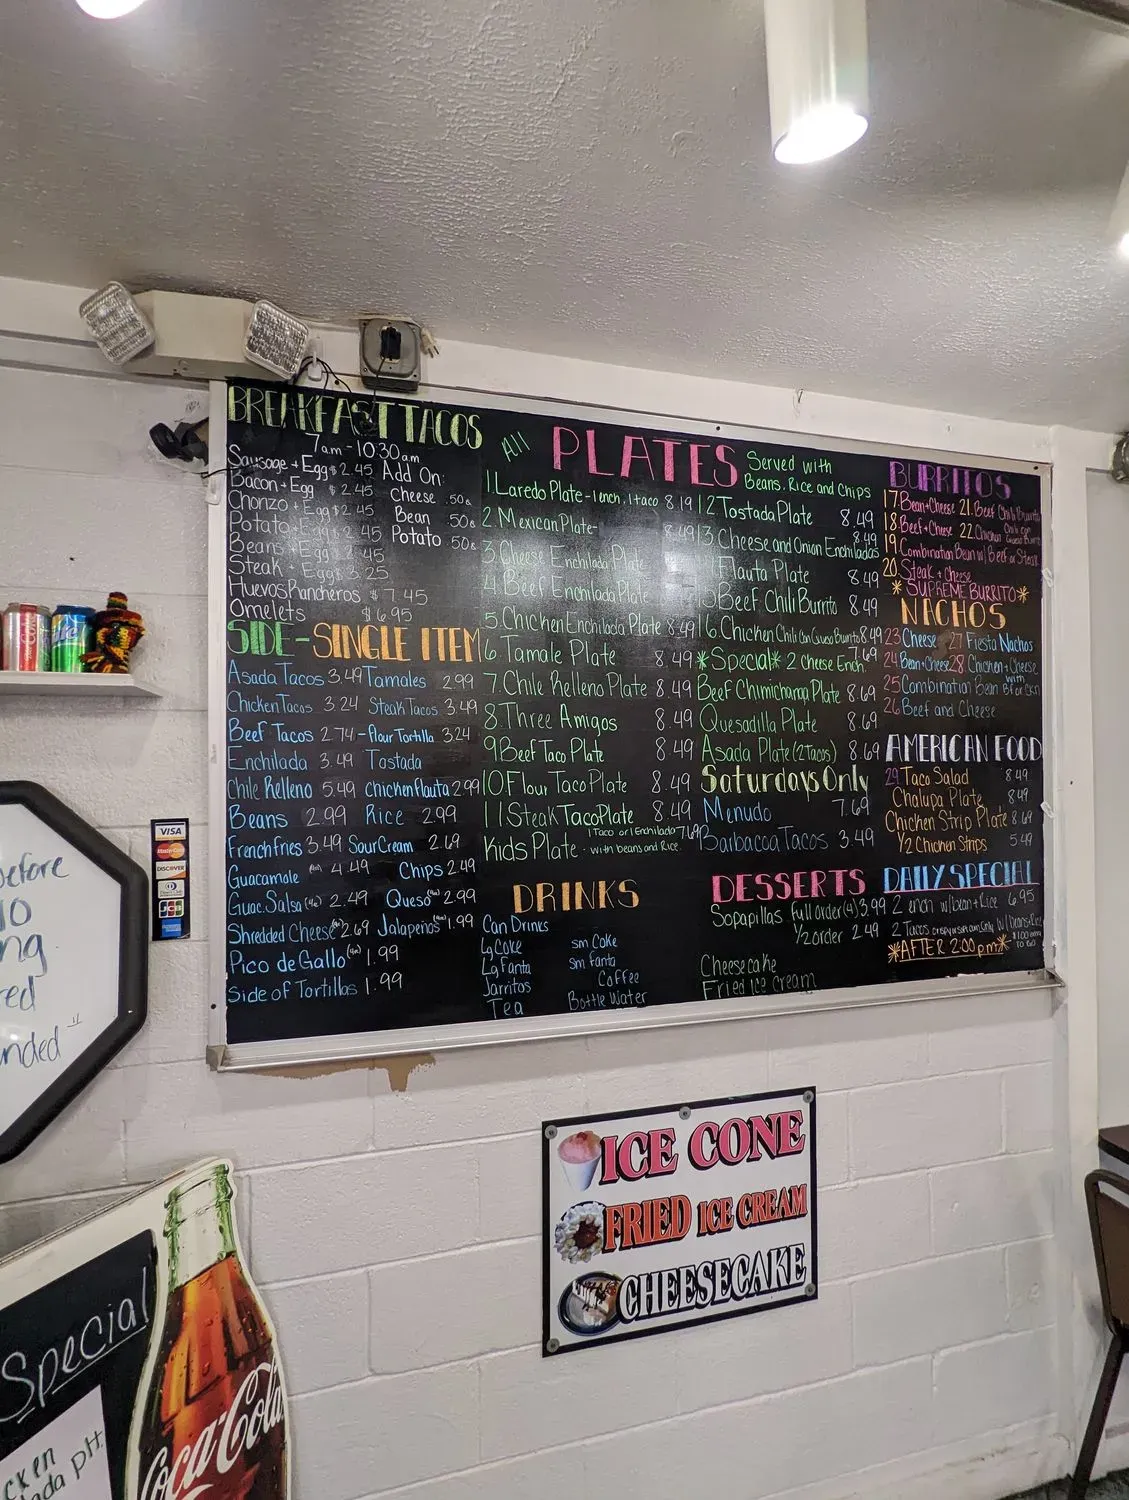 BREAKFAST TACOS
7am-10:30am
Sausage + Egg $2.45
Bacon + Egg $2.45
Chorizo + Egg $2.45
Potato + Egg $2.45
Beans + Egg $2.45
Steak + Egg $3.25
Huevos Rancheros $7.45
Omelets $6.95
Add On:
Cheese .50¢
Bean .50¢
Potato .50¢
SIDE-SINGLE ITEM
Asada Tacos 3.49 Tamales 2.99
Chicken Tacos 3.24 Steak Tacos 3.49
Beef Tacos 2.74 - flour Tortilla 3.24
Enchilada 3.49 Tostada
Chile Relleno 5.49 chicken flauta 2.99
Beans 2.99 Rice 2.99
French fries 3.49 Sour Cream 2.69
Guacamole 4.49 Chips 2.49
Guac. Salsa (4oz) 2.49 Queso (4oz) 2.99
Shredded Cheese 2.69 Jalapeños (4oz) 1.99
Pico de Gallo (4oz) 1.99
Side of Tortillas 1.99
All PLATES Served with Beans, Rice and Chips
1. Laredo Plate - 1 ench, 1 taco 8.19
2. Mexican Plate-
3. Cheese Enchilada Plate
4. Beef Enchilada Plate
5. Chicken Enchilada Plate 8.49
6. Tamale Plate 8.49
7. Chile Relleno Plate 8.49
8 Three Amigos 8.49
9 Beef Taco Plate 8.49
10 Flour Taco Plate 8.49
11 Steak Taco Plate 8.49
Kids Plate - 1 Taco or 1 Enchilada 7.69
with beans and Rice.
12 Tostada Plate 8.49
13 Cheese and Onion Enchiladas
Flauta Plate 8.49
Beef Chili Burrito 8.49
16. Chicken Chili Con Queso Burrito 8.49
*Special* 2 Cheese Ench 7.69
Beef Chimichanga Plate 8.69
Quesadilla Plate 8.69
Asada Plate (2 Tacos) 8.69
Saturdays Only
Menudo 7.69
Barbacoa Tacos 3.49
BURRITOS
17 Bean + Cheese 21. Beef Chili Burrito
18 Beef + Cheese 22. Chicken Chili con Queso Burrito
19 Combination Bean w/ Beef or Steak
20 Steak + Cheese
*SUPREME BURRITO*
NACHOS
23 Cheese 27 Fiesta Nachos
24 Bean + Cheese 28 Chicken + Cheese
25 Combination Bean with BF or CKN
26 Beef and Cheese
AMERICAN FOOD
29 Taco Salad 8.49
Chalupa Plate 8.49
Chicken Strip Plate 8.69
1/2 Chicken Strips 5.49
DRINKS
Can Drinks
Lg Coke sm Coke
Lg Fanta sm fanta
Jarritos Coffee
Tea Bottle Water
DESSERTS
Sopapillas full order (4) 3.99
1/2 order 2.49
Cheesecake
Fried ice cream
DAILY SPECIAL
2 ench w/ bean + Rice 6.95
2 Tacos crispy or soft corn Only w/ Beans + Rice
*AFTER 2:00 pm*
$1.00 extra TO GO
VISA
MasterCard
DISCOVER
JCB
before
10
ng
red
nded
ICE CONE
FRIED ICE CREAM
CHEESECAKE
Special
cken
lada plt
Coca-Cola